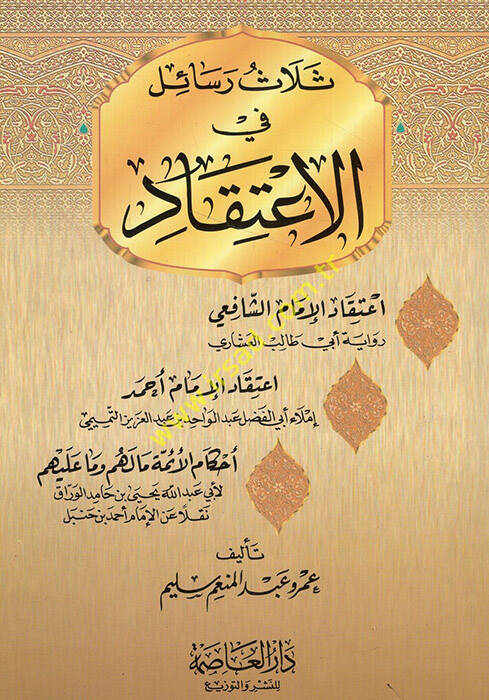 ثَلَاثُ رَسَائِل
في
الِاعْتِقَادِ
اعْتِقَاد الإمَام الشَّافعي
رواية أبي طالب العشاري
اعتقاد الإمام أحمد
إملاء أبي الفضل عبد الواحد بن عبد العزيز التميمي
أحكام الأئمة مالهم وما عليهم
لأبي عبد الله يحيى بن حامد الوراق
نقلًا عن الإمام أحمد بن حنبل
تأليف
عمرو عبد المنعم سليم
دار العاصمة
للنشر والتوزيع